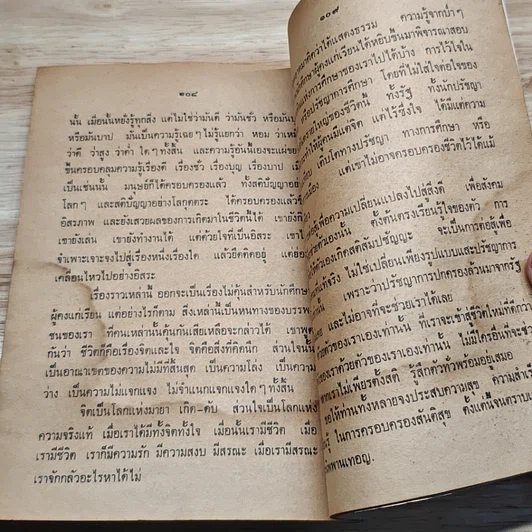 ๑๐๔
นั้น เมื่อนั้นหยั่งรู้ทุกสิ่ง แต่ไม่ใช่ว่ามันดี ว่ามันชั่ว หรือมันบุ
หรือมันบาป มันเป็นความรู้เฉย ๆ ไม่รู้แยกว่า หอม ว่าเห
ว่าดี ว่าสูง ว่าต่ำ ใด ๆ ทั้งสิ้น และความรู้อันนี้เองจะแผ่ขย
ขึ้นครอบคลุมความรู้เรื่องดี เรื่องชั่ว เรื่องบุญ เรื่องบาป เมื่
เป็นเช่นนั้น มนุษย์ก็ได้ครอบครองแล้ว ทั้งสติปัญญาอย่
โลก ๆ และสติปัญญาอย่างโลกุตตระ ได้ครอบครองแล้
อิสรภาพ และยังเสวยผลของการเกิดมาในชีวิตนี้ได้ เขายัง
เขายังเล่น เขายังทำงานได้ แต่ด้วยใจที่เป็นอิสระ เขาไ
จำเพาะเจาะจงไปสู่เรื่องหนึ่งเรื่องใด แล้วยึดติดอยู่ แต่ย่อ
เคลื่อนไหวไปอย่างอิสระ
เรื่องราวเหล่านี้ ออกจะเป็นเรื่องไม่คุ้นสำหรับนักศึกษ
ผู้คงแก่เรียน แต่อย่างไรก็ตาม สิ่งเหล่านี้เป็นหนทางของบรรพ
ชนของเรา ทัศนเหล่านี้ค้นกันเสียเหลือจะกล่าวได้ เขาพูด
กันว่า ชีวิตก็คือเรื่องจิตและใจ จิตคือสิ่งที่คิดนึก ส่วนใจนั้น
เป็นอาณาเขตของความไม่มีที่สิ้นสุด เป็นความโล่ง เป็นความ
ว่าง เป็นความไม่แจกแจง ไม่จำแนกแจกแจงใด ๆ ทั้งสิ้น
จิตเป็นโลกแห่งมายา เกิด–ดับ ส่วนใจเป็นโลกแห่ง
ความจริงแท้ เมื่อเราได้มีทั้งจิตทั้งใจ เมื่อนั้นเรามีชีวิต เมื่อ
เรามีชีวิต เราก็มีความรัก มีความสงบ มีสรณะ เมื่อเรามีสรณะ
เราจักกลัวอะไรหาได้ไม่
๑๐๗
สมาคิดว่าได้แสดงธรรม ความรู้จากป่า ๆ
ผู้คงแก่เรียนได้หยิบขึ้นมาพิจารณาสอบ
ทางการศึกษาของเราไปได้บ้าง การไว้ใจใน
หรือปรัชญาการศึกษา โดยที่ไม่ใส่ใจต่อใจของ
รายใหญ่ของชีวิตนี้ ทั้งรัฐ ทั้งนักปรัชญา
ทำให้ผู้คนมีแต่จิต แต่ไร้ซึ่งใจ ได้มีแต่ความ
เติบโตทางปรัชญา ทางการศึกษา หรือ
เมือง แต่เขาไม่อาจครอบครองชีวิตไว้ได้แม้
สู้เพื่อความเปลี่ยนแปลงไปสู่สิ่งดี เพื่อสังคม
ของนั้น ตั้งต้นตรงเรียนรู้ใจของตัว การ
ได้ครองเกิดสติสัมปชัญญะ จะเป็นการต่อสู้เพื่อ
แท้จริง ไม่ใช่เปลี่ยนเพียงรูปแบบและปรัชญาการ
เพราะว่าปรัชญาการปกครองล้วนมาจากรัฐ
และไม่อาจที่จะช่วยเราได้เลย
ตัวของเราเองเท่านั้น ที่เราจะเข้าสู่ชีวิตใหม่ที่ดีกว่า
ของเราด้วยตัวของเราเองเท่านั้น ไม่มีใครอื่นที่จะช่วย
เราไม่เพียรตั้งสติ รู้สึกตัวทั่วพร้อมอยู่เสมอ
ขอให้ท่านทั้งหลายจงประสบความสุข ความสำเร็จ
รู้ ในการครอบครองสันติสุข ตั้งแต่นี้จนตราบ
นิพพานเทอญ.